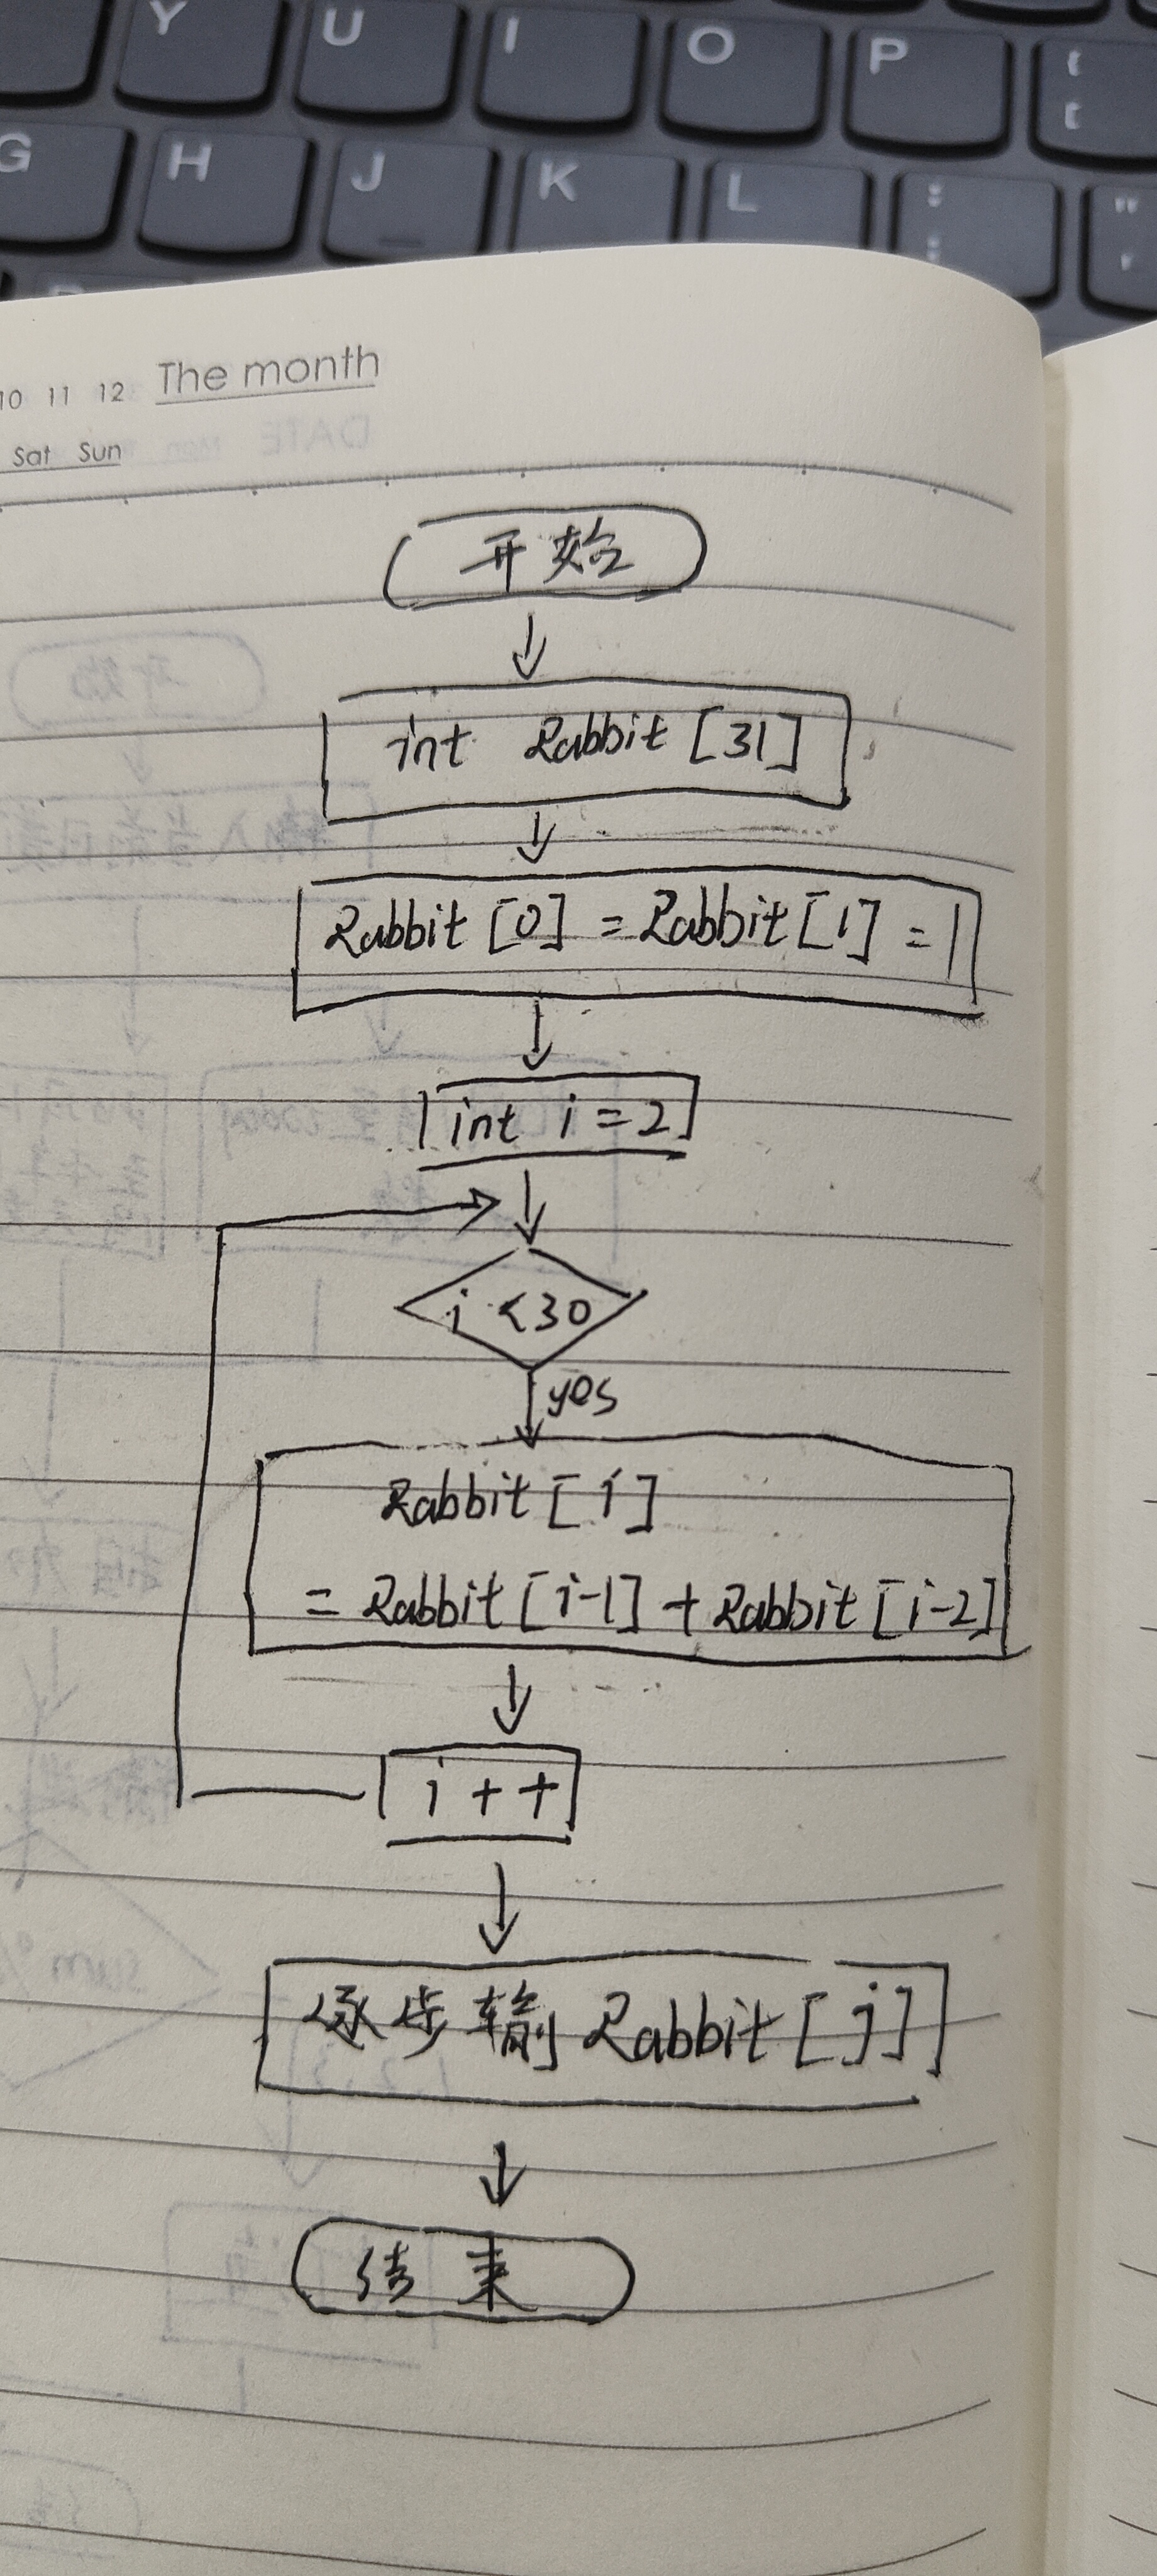 Y U I O P
G H J K L
10 11 12 The month
Sat Sun
开始
int Rabbit [31]
Rabbit [0] = Rabbit [1] = 1
int i = 2
i < 30
yes
Rabbit [i]
= Rabbit [i-1] + Rabbit [i-2]
i + +
逐步输 Rabbit [j]
结束